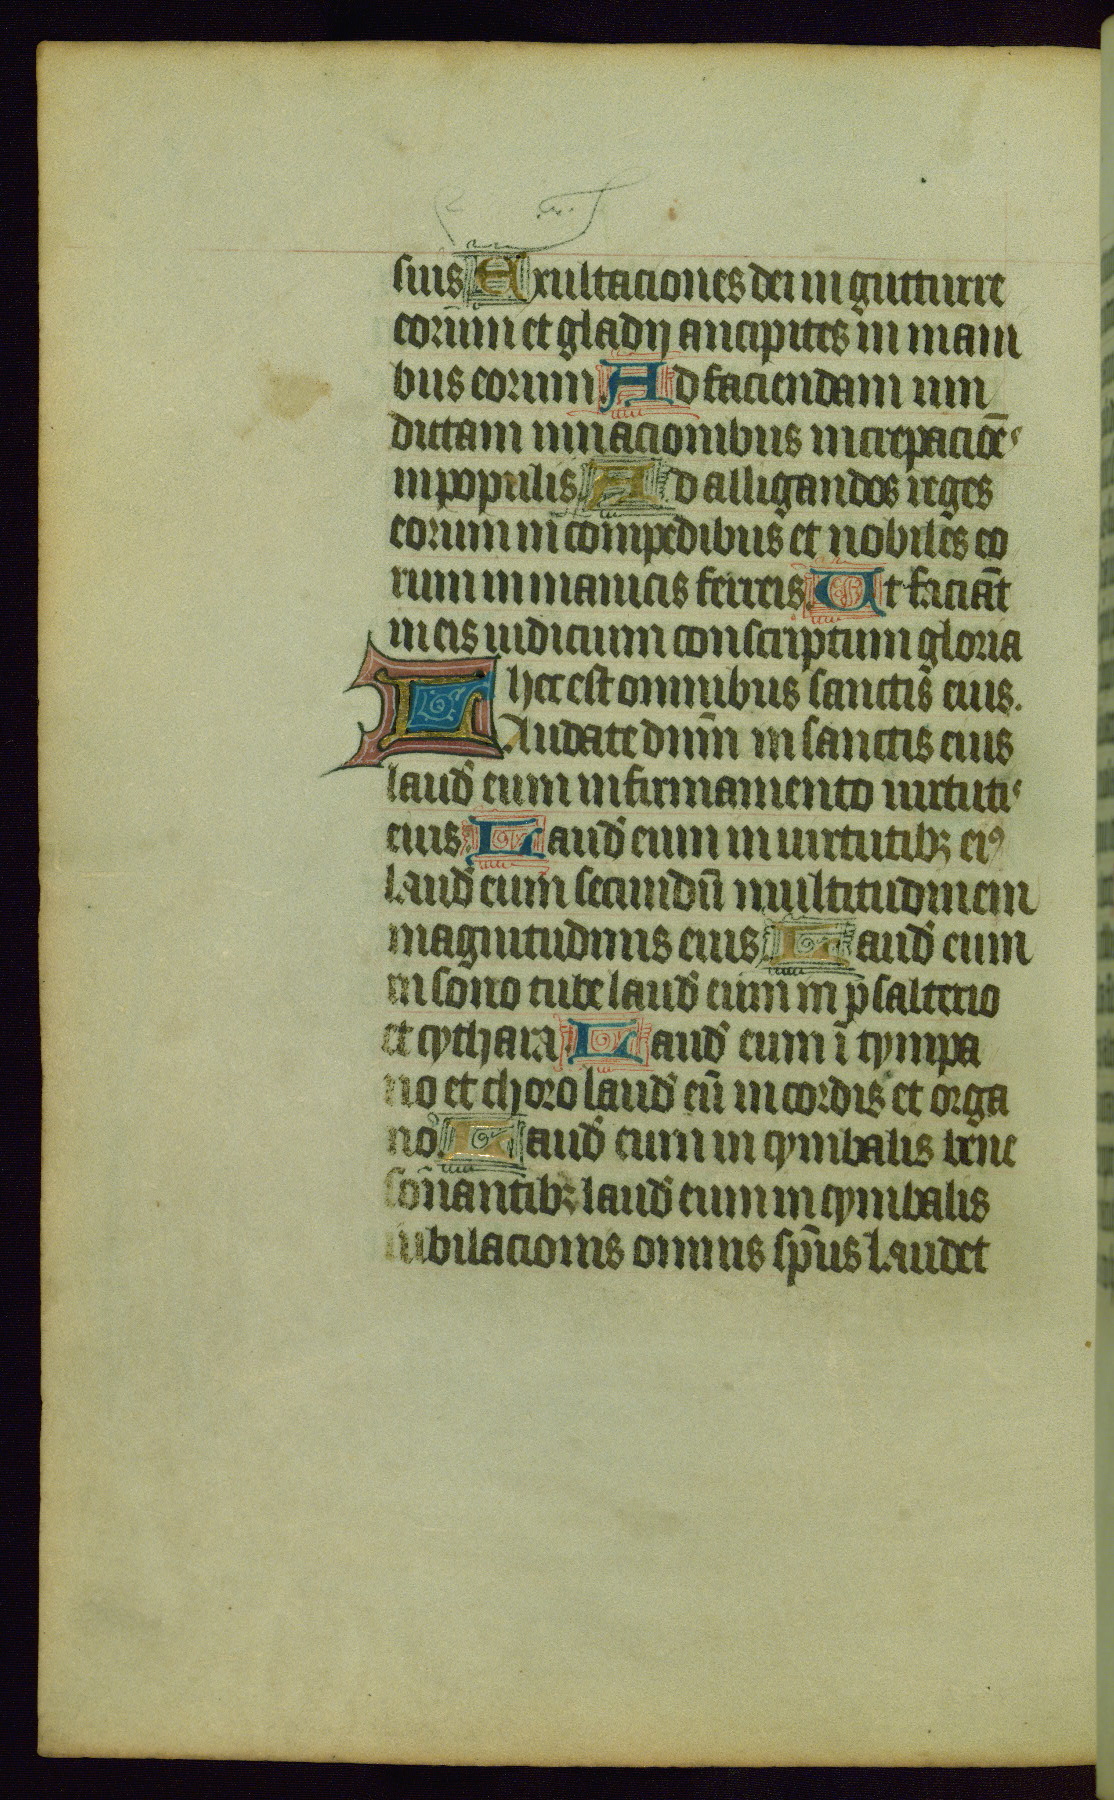 suis Exultaciones dei in gutture
eorum et gladij ancipites in mani
bus eorum Ad faciendam uin
dictam in nacionibus increpaciões
in populis Ad alligandos reges
eorum in compedibus et nobiles eo
rum in manicis ferreis Ut faciāt
in eis iudicium conscriptum gloria
hec est omnibus sanctis eius.
Laudate dnm̄ in sanctis eius
laud' eum in firmamento uirtutis
eius Laud' eum in uirtutibꝫ eiꝰ
laud' eum secundū multitudinem
magnitudinis eius Laud' eum
in sono tube laud' eum in psalterio
et cythara Laud' eum ī tympa
no et choro laud' eū in cordis et orga
no Laud' eum in cymbalis bene
sonantibꝫ laud' eum in cymbalis
iubilacionis omnis sp̄us laudet